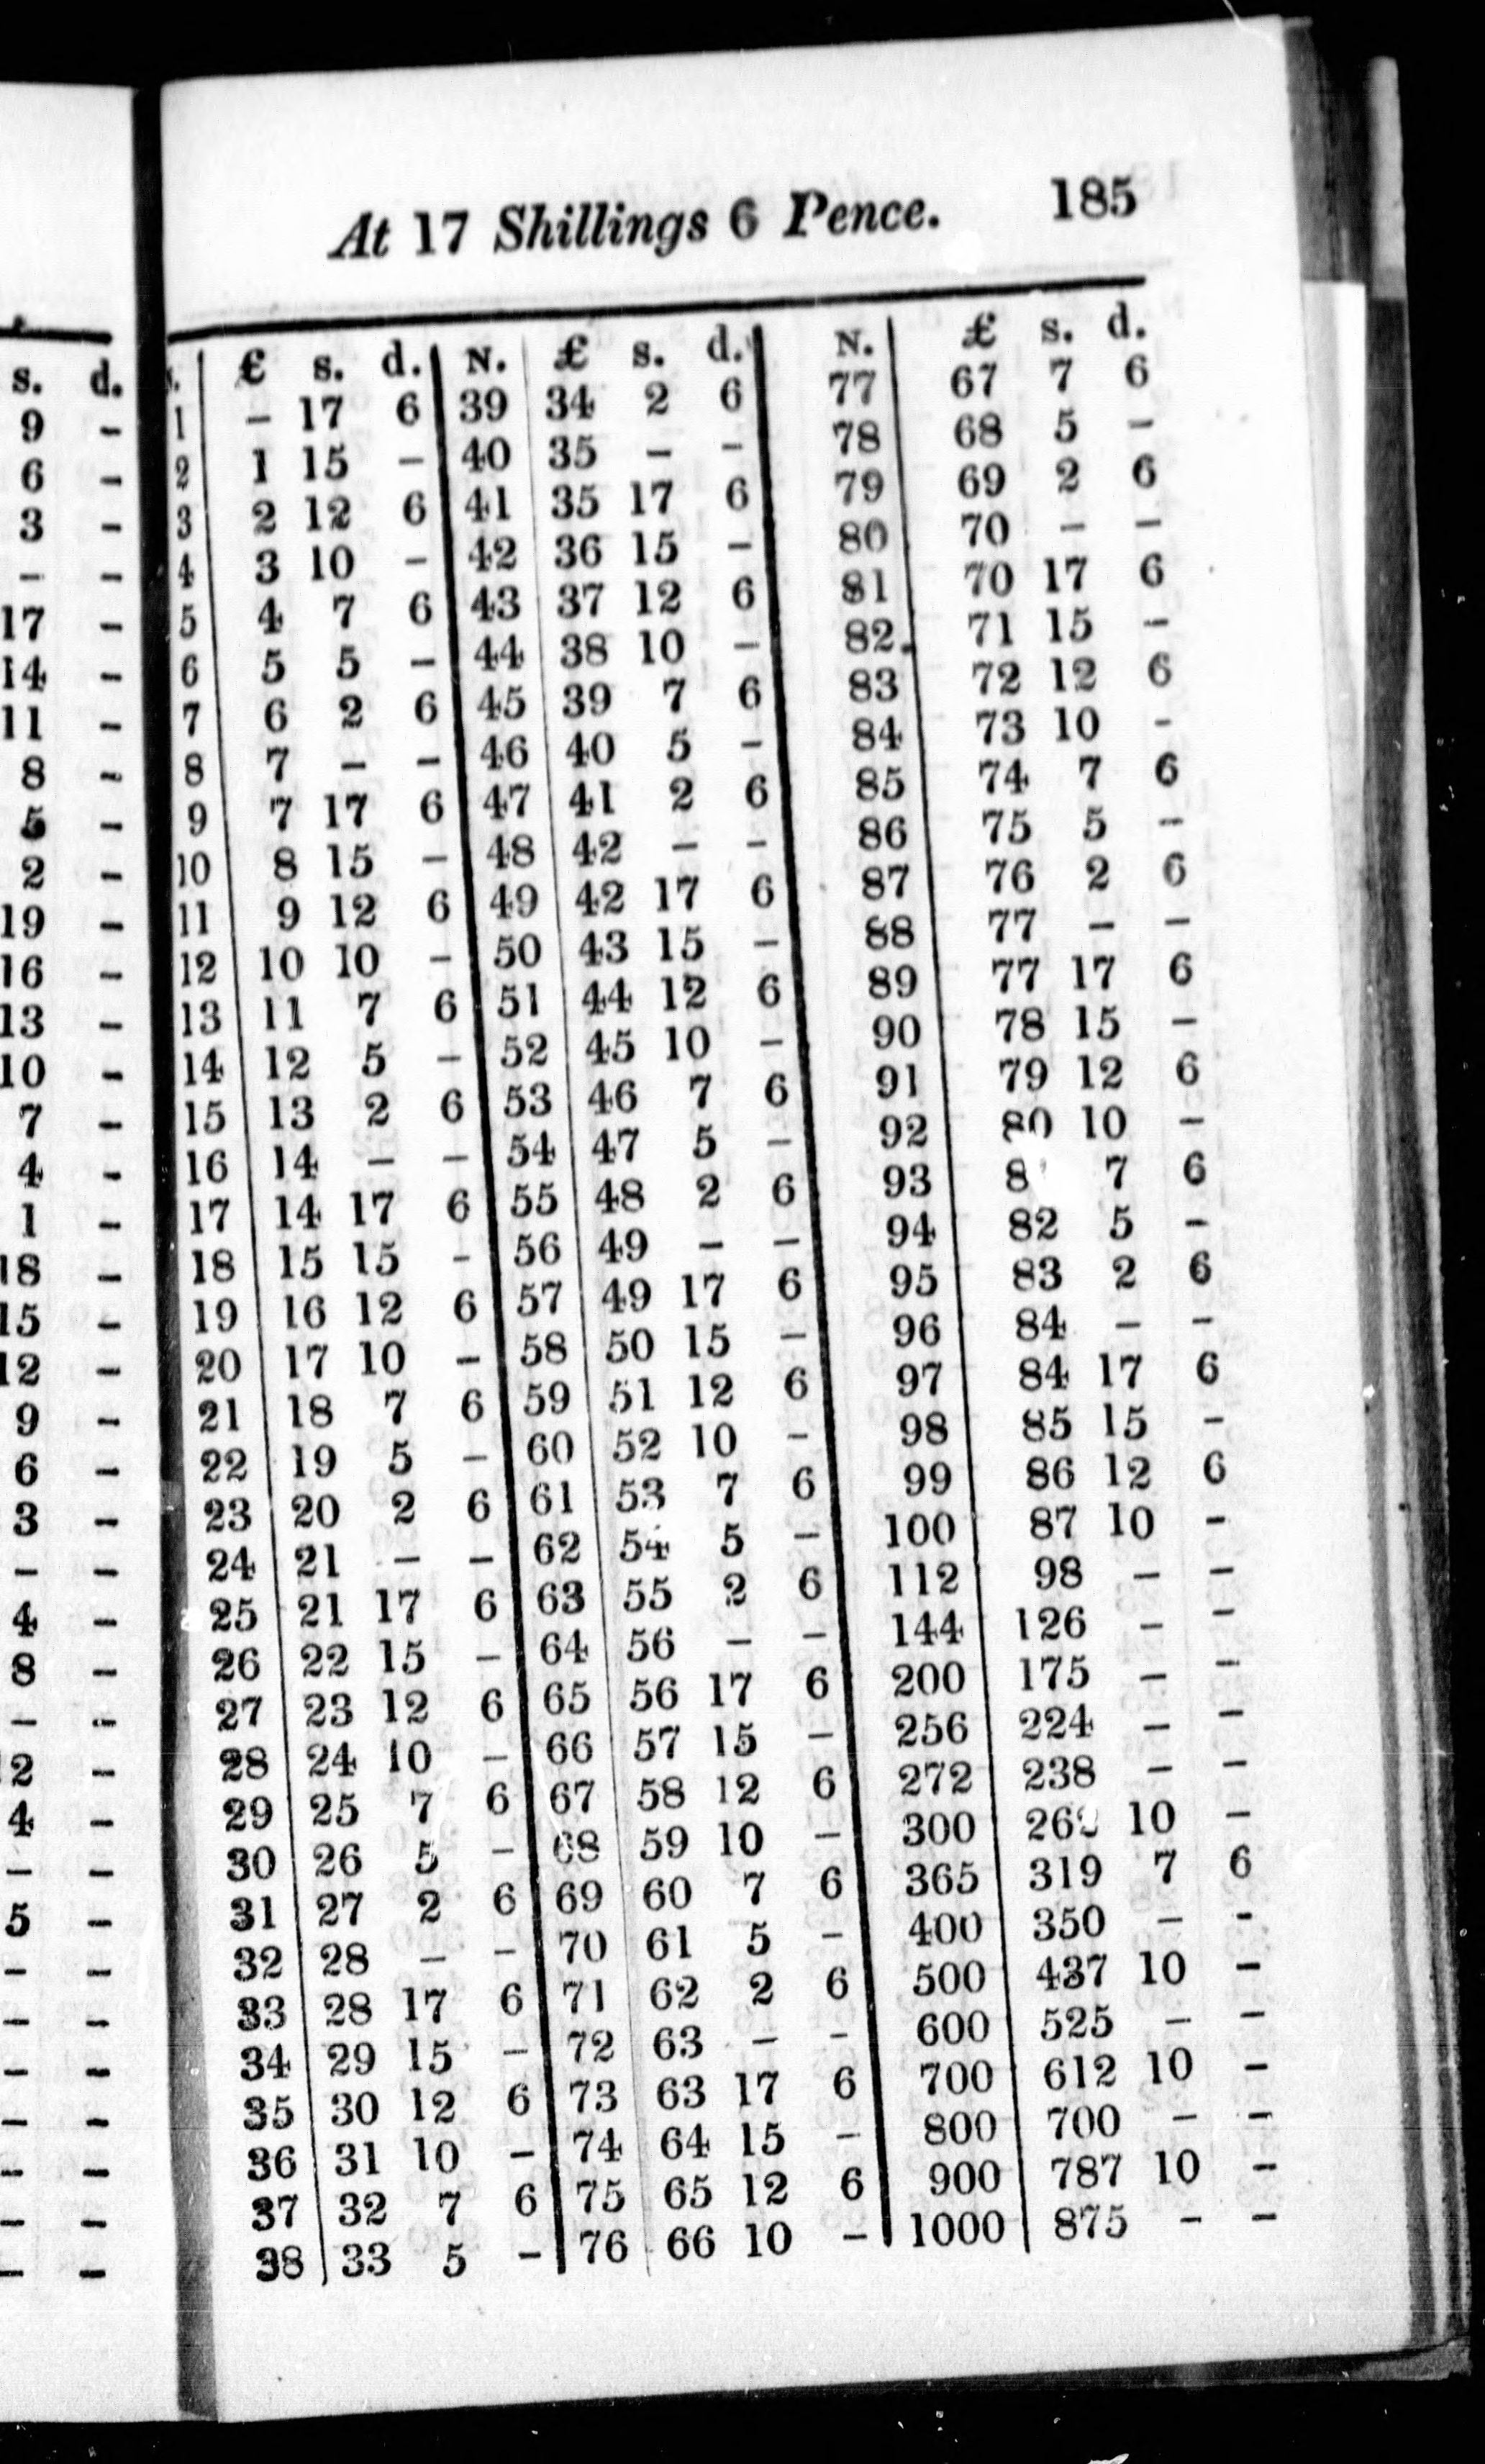 s. d.
9 -
6 -
3 -
- -
17 -
14 -
11 -
8 -
5 -
2 -
19 -
16 -
13 -
10 -
7 -
4 -
1 -
18 -
15 -
12 -
9 -
6 -
3 -
- -
4 -
8 -
- -
2 -
4 -
- -
5 -
- -
- -
- -
- -
- -
- -
- -
At 17 Shillings 6 Pence. 185
£ s. d. N. £ s. d. N. £ s. d.
1 - 17 6 39 34 2 6 77 67 7 6
2 1 15 - 40 35 - - 78 68 5 -
3 2 12 6 41 35 17 6 79 69 2 6
4 3 10 - 42 36 15 - 80 70 - -
5 4 7 6 43 37 12 6 81 70 17 6
6 5 5 - 44 38 10 - 82. 71 15 -
7 6 2 6 45 39 7 6 83 72 12 6
8 7 - - 46 40 5 - 84 73 10 -
9 7 17 6 47 41 2 6 85 74 7 6
10 8 15 - 48 42 - - 86 75 5 -
11 9 12 6 49 42 17 6 87 76 2 6
12 10 10 - 50 43 15 - 88 77 - -
13 11 7 6 51 44 12 6 89 77 17 6
14 12 5 - 52 45 10 - 90 78 15 -
15 13 2 6 53 46 7 6 91 79 12 6
16 14 - - 54 47 5 - 92 80 10 -
17 14 17 6 55 48 2 6 93 8 7 6
18 15 15 - 56 49 - - 94 82 5 -
19 16 12 6 57 49 17 6 95 83 2 6
20 17 10 - 58 50 15 - 96 84 - -
21 18 7 6 59 51 12 6 97 84 17 6
22 19 5 - 60 52 10 - 98 85 15 -
23 20 2 6 61 53 7 6 99 86 12 6
24 21 - - 62 54 5 - 100 87 10 -
25 21 17 6 63 55 2 6 112 98 - -
26 22 15 - 64 56 - - 144 126 - -
27 23 12 6 65 56 17 6 200 175 - -
28 24 10 - 66 57 15 - 256 224 - -
29 25 7 6 67 58 12 6 272 238 - -
30 26 5 - 68 59 10 - 300 262 10 -
31 27 2 6 69 60 7 6 365 319 7 6
32 28 - - 70 61 5 - 400 350 - -
33 28 17 6 71 62 2 6 500 437 10 -
34 29 15 - 72 63 - - 600 525 - -
35 30 12 6 73 63 17 6 700 612 10 -
36 31 10 - 74 64 15 - 800 700 - -
37 32 7 6 75 65 12 6 900 787 10 -
38 33 5 - 76 66 10 - 1000 875 - -